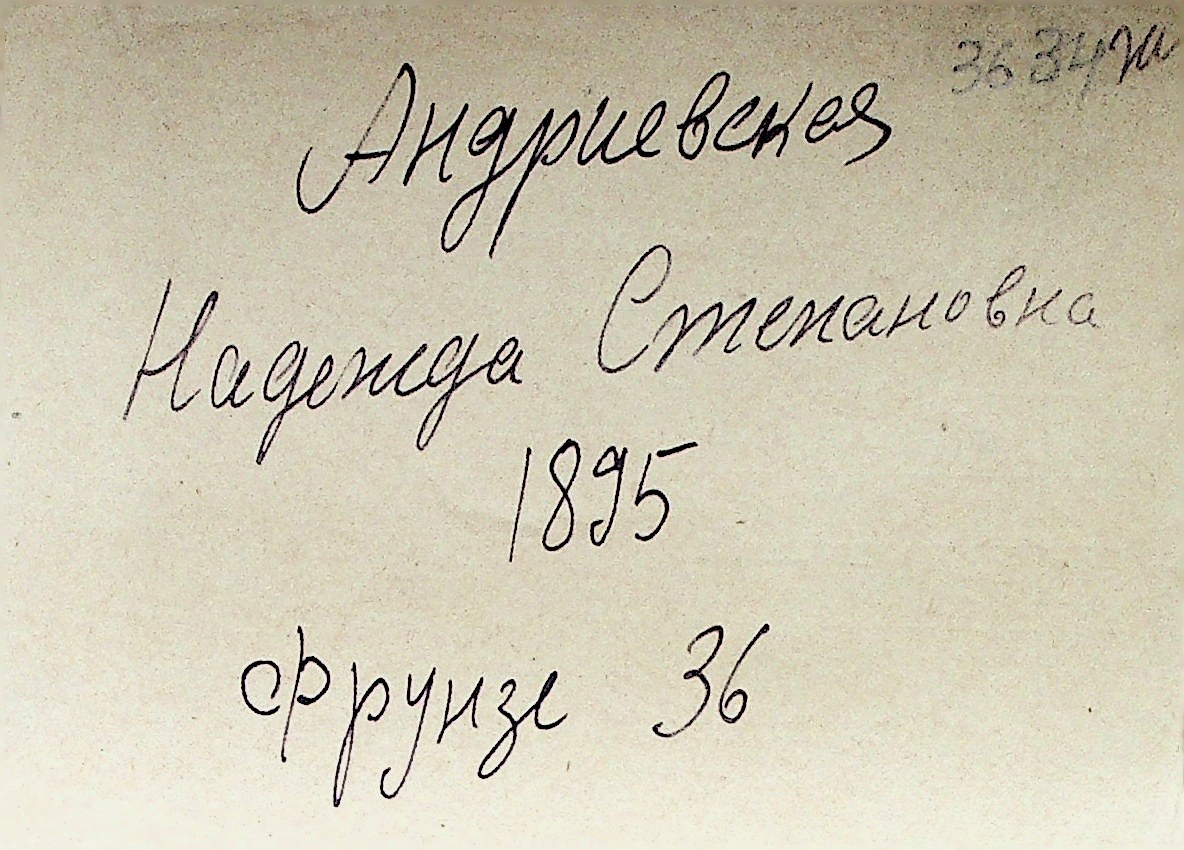 3634ж
Андриевская
Надежда Степановна
1895
Фрунзе 36